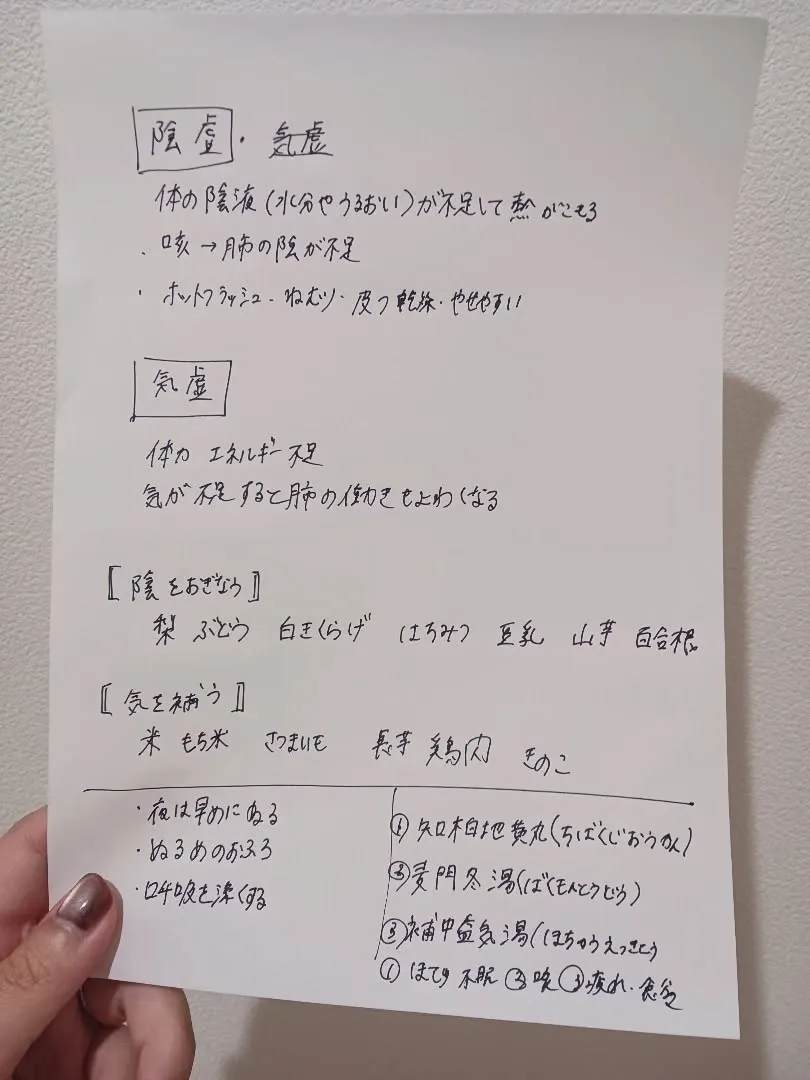 陰虚・気虚
体の陰液(水分やうるおい)が不足して熱がこもる
・咳→肺の陰が不足
・ホットフラッシュ・ねむり・皮フ乾燥・やせやすい
気虚
体力 エネルギー不足
気が不足すると肺の働きもよわくなる
〚陰をおぎなう〛
梨 ぶどう 白きくらげ はちみつ 豆乳 山芋 百合根
〚気を補う〛
米 もち米 さつまいも 長芋 鶏肉 きのこ
・夜は早めにねる
・ぬるめのおふろ
・呼吸を深くする
①知柏地黄丸(ちばくじおうがん)
②麦門冬湯(ばくもんとうどう)
③補中益気湯(ほちゅうえっきとう
①ほてり 不眠 ②咳 ③疲れ・食